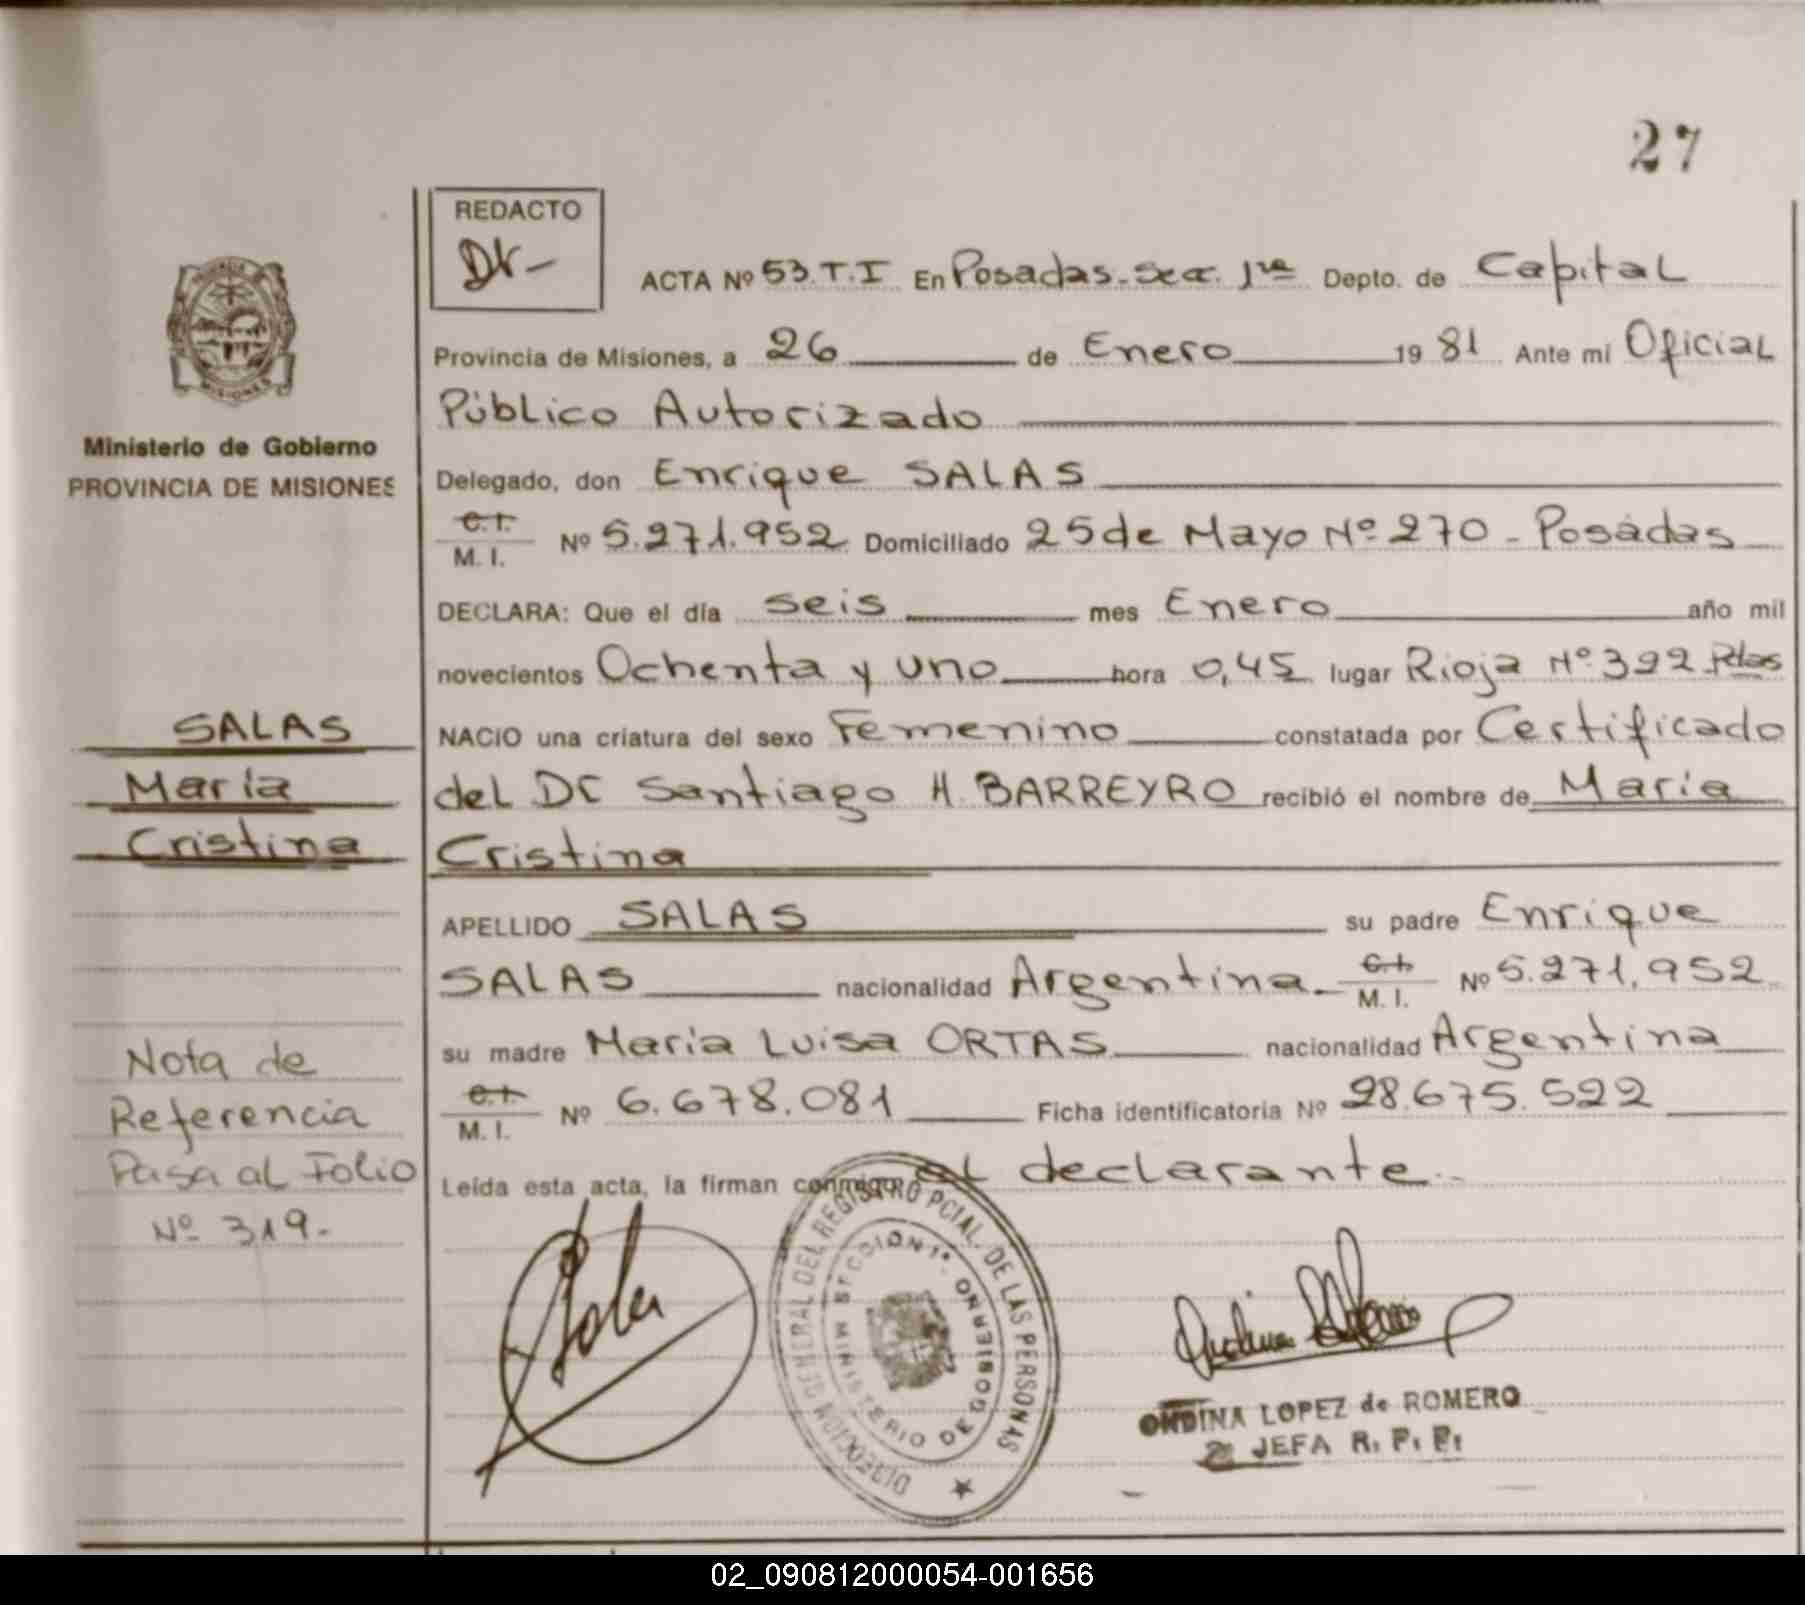 27
REDACTO
Dr-
ACTA Nº 53.T.I En Posadas-Sec. 1ra Depto. de Capital
Provincia de Misiones, a 26 de Enero 1981 Ante mi Oficial
Público Autorizado
Delegado, don Enrique SALAS
C.I.
M. I. Nº 5.271.952 Domiciliado 25 de Mayo Nº 270 - Posadas
DECLARA: Que el día seis mes Enero año mil
novecientos Ochenta y uno hora 0,45 lugar Rioja Nº 392 Pdas
NACIO una criatura del sexo Femenino constatada por Certificado
del Dr Santiago H. BARREYRO recibió el nombre de María
Cristina
APELLIDO SALAS su padre Enrique
SALAS nacionalidad Argentina. C.I.
M. I. Nº 5.271.952
su madre María Luisa ORTAS nacionalidad Argentina
C.I.
M. I. Nº 6.678.081 Ficha identificatoria Nº 28.675.522
Leída esta acta, la firman conmigo el declarante.
Ministerio de Gobierno
PROVINCIA DE MISIONES
SALAS
María
Cristina
Nota de
Referencia
Pasa al Folio
Nº 319.
MISIONES
DIRECCION GENERAL DEL REGISTRO PCIAL. DE LAS PERSONAS
SECCION 1ª. MINISTERIO DE GOBIERNO
ONDINA LOPEZ de ROMERO
2ª JEFA R. P. P.
02_090812000054-001656